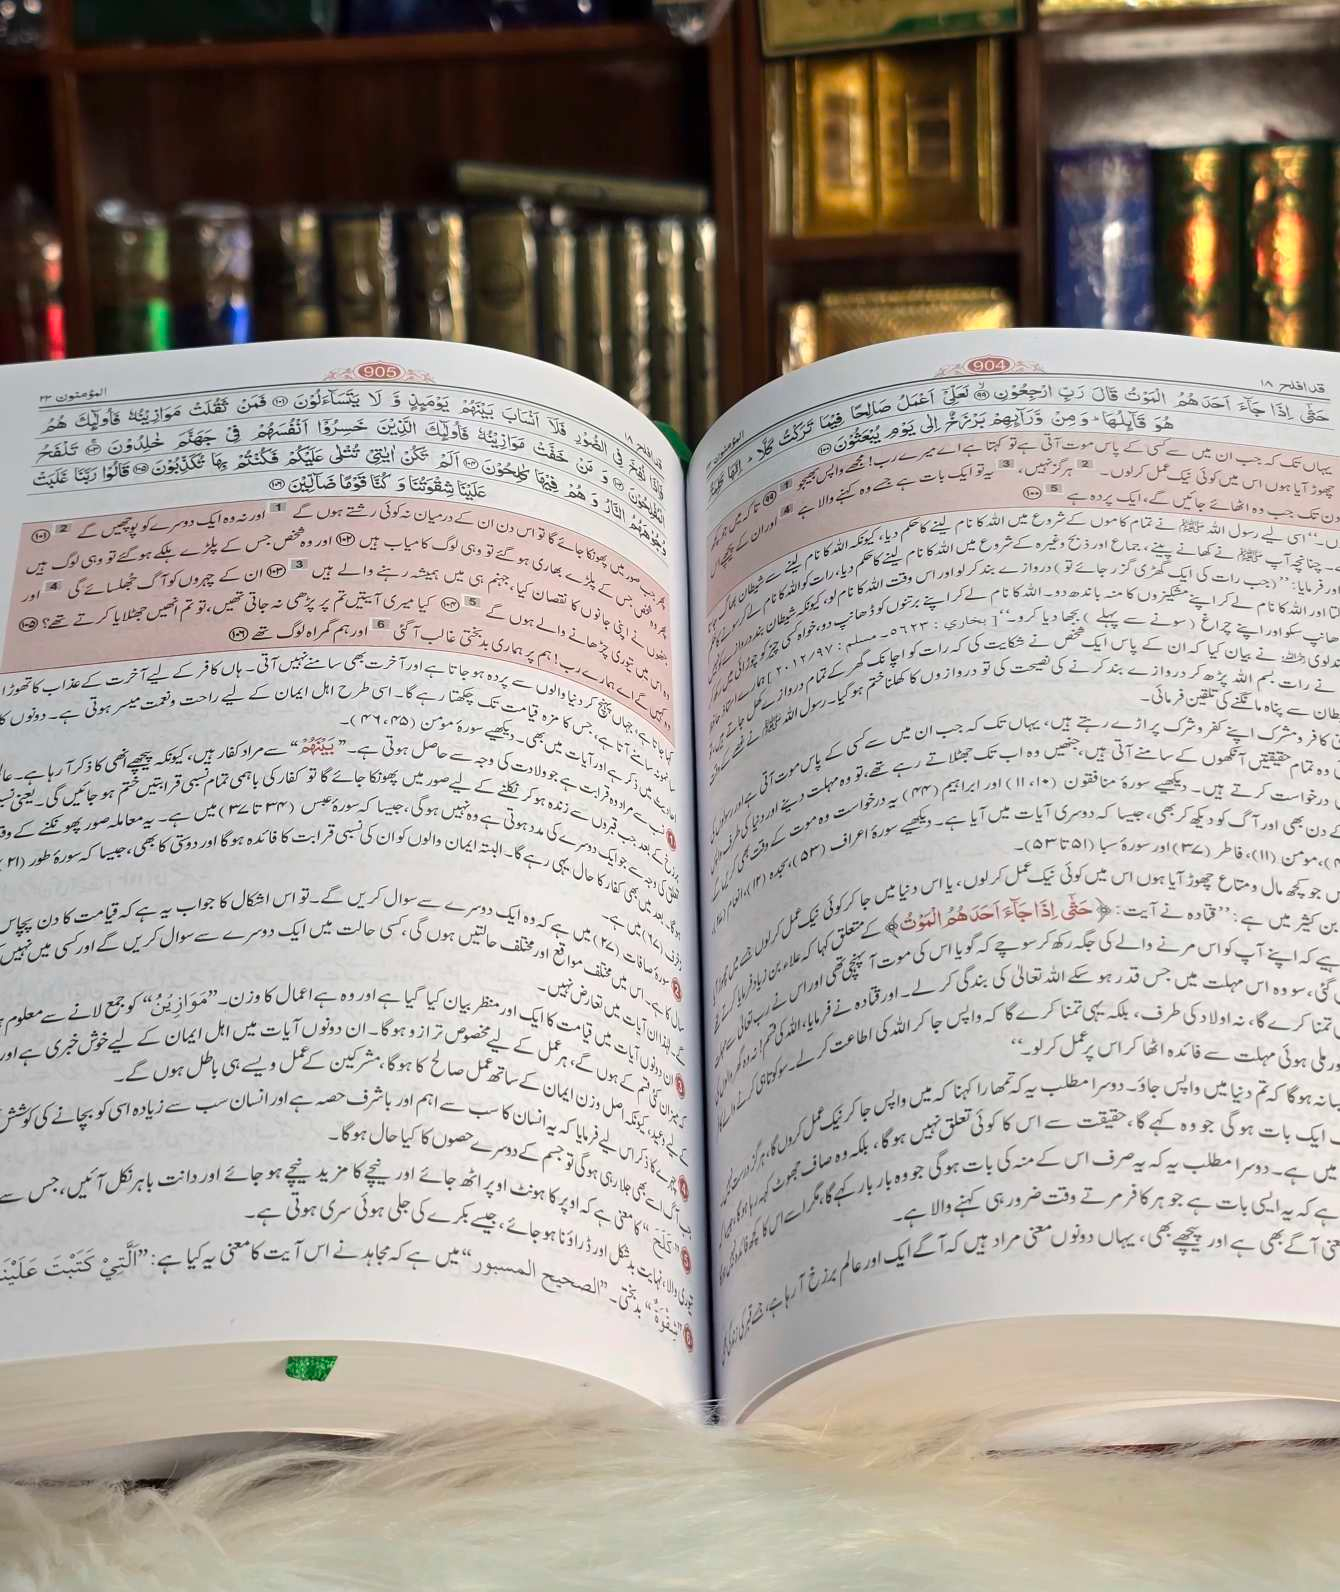 904
قد افلح ۱۸
المؤمنون ۲۳
حَتّٰى اِذَا جَآءَ اَحَدَهُمُ الْمَوْتُ قَالَ رَبِّ ارْجِعُوْنِ ۙ۹۹ لَعَلِّيْٓ اَعْمَلُ صَالِحًا فِيْمَا تَرَكْتُ كَلَّا ؕ اِنَّهَا كَلِمَةٌ
هُوَ قَآئِلُهَا ؕ وَ مِنْ وَّرَآئِهِمْ بَرْزَخٌ اِلٰى يَوْمِ يُبْعَثُوْنَ ۱۰۰
یہاں تک کہ جب ان میں سے کسی کے پاس موت آتی ہے تو کہتا ہے اے میرے رب! مجھے واپس بھیجو 1 ۹۹ تاکہ میں جو کچھ
چھوڑ آیا ہوں اس میں کوئی نیک عمل کرلوں۔ 2 ہرگز نہیں، 3 یہ تو ایک بات ہے جسے وہ کہنے والا ہے 4 اور ان کے پیچھے اس
دن تک جب وہ اٹھائے جائیں گے، ایک پردہ ہے 5 ۱۰۰
اسی لیے رسول اللہ ﷺ نے تمام کاموں کے شروع میں اللہ کا نام لینے کا حکم دیا، کیونکہ اللہ کا نام لینے سے شیطان بھاگ جاتا
چنانچہ آپ ﷺ نے کھانے پینے، جماع اور ذبح وغیرہ کے شروع میں اللہ کا نام لینے کا حکم دیا، رات کو اللہ کا نام لے کر سونے
فرمایا: ’’(جب رات کی ایک گھڑی گزر جائے تو) دروازے بند کر لو اور اس وقت اللہ کا نام لو، کیونکہ شیطان بند دروازے
اور اللہ کا نام لے کر اپنے مشکیزوں کا منہ باندھ دو۔ اللہ کا نام لے کر اپنے برتنوں کو ڈھانپ دو، خواہ کسی چیز کو چوڑائی میں رکھ کر
ڈھانپ سکو اور اپنے چراغ (سونے سے پہلے) بجھا دیا کرو۔‘‘ [بخاري : ۵۶۲۳۔ مسلم : ۲۰۱۲/۹۷]
نے بیان کیا کہ ان کے پاس ایک شخص نے شکایت کی کہ رات کو اچانک گھر کے تمام دروازے کھل جاتے ہیں،
نے رات بسم اللہ پڑھ کر دروازے بند کرنے کی نصیحت کی تو دروازوں کا کھلنا ختم ہو گیا۔ رسول اللہ ﷺ نے
شیطان سے پناہ مانگنے کی تلقین فرمائی۔
کافر و مشرک اپنے کفر و شرک پر اڑے رہتے ہیں، یہاں تک کہ جب ان میں سے کسی کے پاس موت آتی ہے
وہ تمام حقیقتیں آنکھوں کے سامنے آتی ہیں، جنھیں وہ اب تک جھٹلاتے رہے تھے، تو وہ مہلت دینے اور دنیا کی طرف
درخواست کرتے ہیں۔ دیکھیے سورۂ منافقون (۱۰، ۱۱) اور ابراہیم (۴۴) یہ درخواست وہ موت کے وقت بھی کریں گے
کے دن بھی اور آگ کو دیکھ کر بھی، جیسا کہ دوسری آیات میں آیا ہے۔ دیکھیے سورۂ اعراف (۵۳)، سجدہ (۱۲)، انعام
مومن (۱۱)، فاطر (۳۷) اور سورۂ سبا (۵۱ تا ۵۳)۔
جو کچھ مال و متاع چھوڑ آیا ہوں اس میں کوئی نیک عمل کرلوں، یا اس دنیا میں جا کر کوئی نیک عمل کرلوں
ابن کثیر میں ہے: ’’قتادہ نے آیت: ﴿حَتّٰى اِذَا جَآءَ اَحَدَهُمُ الْمَوْتُ﴾ کے متعلق کہا کہ علاء بن زیاد فرمایا کرتے تھے
کہ اپنے آپ کو اس مرنے والے کی جگہ رکھ کر سوچے کہ گویا اس کی موت آ پہنچی تھی اور اس نے رب تعالیٰ سے
گئی، سو وہ اس مہلت میں جس قدر ہو سکے اللہ تعالیٰ کی بندگی کر لے۔ اور قتادہ نے فرمایا، اللہ کی قسم!
تمنا کرے گا، نہ اولاد کی طرف، بلکہ یہی تمنا کرے گا کہ واپس جا کر اللہ کی اطاعت کر لے۔
ملی ہوئی مہلت سے فائدہ اٹھا کر اس پر عمل کر لو۔‘‘
ہوگا کہ تم دنیا میں واپس جاؤ۔ دوسرا مطلب یہ کہ تمھارا کہنا کہ میں واپس جا کر نیک عمل کروں گا، ہرگز درست نہیں
ایک بات ہوگی جو وہ کہے گا، حقیقت سے اس کا کوئی تعلق نہیں ہوگا، بلکہ وہ صاف جھوٹ کہہ رہا ہوگا،
میں ہے۔ دوسرا مطلب یہ کہ یہ صرف اس کے منہ کی بات ہوگی جو وہ بار بار کہے گا، مگر اسے اس کا کچھ فائدہ نہیں ہوگا
ہے کہ یہ ایسی بات ہے جو ہر کافر مرتے وقت ضرور ہی کہنے والا ہے۔
معنی آگے بھی ہے اور پیچھے بھی، یہاں دونوں معنی مراد ہیں کہ آگے ایک اور عالم برزخ آ رہا ہے، جسے قبر کی زندگی بھی
905
قد افلح ۱۸
المؤمنون ۲۳
فَاِذَا نُفِخَ فِي الصُّوْرِ فَلَآ اَنْسَابَ بَيْنَهُمْ يَوْمَئِذٍ وَّ لَا يَتَسَآءَلُوْنَ ۱۰۱ فَمَنْ ثَقُلَتْ مَوَازِيْنُهٗ فَاُولٰٓئِكَ هُمُ
الْمُفْلِحُوْنَ ۱۰۲ وَ مَنْ خَفَّتْ مَوَازِيْنُهٗ فَاُولٰٓئِكَ الَّذِيْنَ خَسِرُوْٓا اَنْفُسَهُمْ فِيْ جَهَنَّمَ خٰلِدُوْنَ ۱۰۳ تَلْفَحُ
وُجُوْهَهُمُ النَّارُ وَ هُمْ فِيْهَا كٰلِحُوْنَ ۱۰۴ اَلَمْ تَكُنْ اٰيٰتِيْ تُتْلٰى عَلَيْكُمْ فَكُنْتُمْ بِهَا تُكَذِّبُوْنَ ۱۰۵ قَالُوْا رَبَّنَا غَلَبَتْ
عَلَيْنَا شِقْوَتُنَا وَ كُنَّا قَوْمًا ضَآلِّيْنَ ۱۰۶
پھر جب صور میں پھونکا جائے گا تو اس دن ان کے درمیان نہ کوئی رشتے ہوں گے 1 اور نہ وہ ایک دوسرے کو پوچھیں گے 2 ۱۰۱
پھر وہ شخص جس کے پلڑے بھاری ہو گئے تو وہی لوگ کامیاب ہیں ۱۰۲ اور وہ شخص جس کے پلڑے ہلکے ہو گئے تو وہی لوگ ہیں
جنھوں نے اپنی جانوں کا نقصان کیا، جہنم ہی میں ہمیشہ رہنے والے ہیں 3 ۱۰۳ ان کے چہروں کو آگ جھلسائے گی 4 اور
وہ اس میں تیوری چڑھانے والے ہوں گے 5 ۱۰۴ کیا میری آیتیں تم پر پڑھی نہ جاتی تھیں، تو تم انھیں جھٹلایا کرتے تھے؟ ۱۰۵
وہ کہیں گے اے ہمارے رب! ہم پر ہماری بدبختی غالب آ گئی 6 اور ہم گمراہ لوگ تھے ۱۰۶
کہا جاتا ہے، جہاں پہنچ کر دنیا والوں سے پردہ ہو جاتا ہے اور آخرت بھی سامنے نہیں آتی۔ ہاں کافر کے لیے آخرت کے عذاب کا تھوڑا
سا نمونہ سامنے آتا ہے، جس کا مزہ قیامت تک چکھتا رہے گا۔ اسی طرح اہل ایمان کے لیے راحت و نعمت میسر ہوتی ہے۔ دونوں کا
احادیث میں ذکر ہے اور آیات میں بھی۔ دیکھیے سورۂ مومن (۴۵، ۴۶)۔
1 نسب سے مراد وہ قرابت ہے جو ولادت کی وجہ سے حاصل ہوتی ہے۔ ’’بَيْنَهُمْ‘‘ سے مراد کفار ہیں، کیونکہ پیچھے انھی کا ذکر آ رہا ہے۔
برزخ کے بعد جب قبروں سے زندہ ہو کر نکلنے کے لیے صور میں پھونکا جائے گا تو کفار کی باہمی تمام نسبی قرابتیں ختم ہو جائیں گی۔ یعنی
تعلق کی وجہ سے جو ایک دوسرے کی مدد ہوتی ہے وہ نہیں ہوگی، جیسا کہ سورۂ عبس (۳۴ تا ۳۷) میں ہے۔ یہ معاملہ صور پھونکنے کے
ہوگا۔ بعد میں بھی کفار کا حال یہی رہے گا۔ البتہ ایمان والوں کو ان کی نسبی قرابت کا فائدہ ہوگا اور دوستی کا بھی، جیسا کہ سورۂ طور (۲۱)
زخرف (۶۷) میں ہے۔
2 سورۂ صافات (۲۷) میں ہے کہ وہ ایک دوسرے سے سوال کریں گے۔ تو اس اشکال کا جواب یہ ہے کہ قیامت کا دن پچاس
سال کا ہے۔ اس میں مختلف مواقع اور مختلف حالتیں ہوں گی، کسی حالت میں ایک دوسرے سے سوال کریں گے اور کسی میں نہیں
گے۔ لہٰذا ان آیات میں تعارض نہیں۔
3 ان دونوں آیات میں قیامت کا ایک اور منظر بیان کیا گیا ہے اور وہ ہے اعمال کا وزن۔ ’’مَوَازِيْنُ‘‘ کو جمع لانے سے معلوم
کہ میزان کئی قسم کے ہوں گے، ہر عمل کے لیے مخصوص ترازو ہوگا۔ ان دونوں آیات میں اہل ایمان کے لیے خوش خبری ہے اور
کے لیے وعید، کیونکہ اصل وزن ایمان کے ساتھ عمل صالح کا ہوگا، مشرکین کے عمل ویسے ہی باطل ہوں گے۔
4 چہرے کا ذکر اس لیے فرمایا کہ یہ انسان کا سب سے اہم اور باشرف حصہ ہے اور انسان سب سے زیادہ اسی کو بچانے کی کوشش
جب آگ اسے بھی جلا رہی ہوگی تو جسم کے دوسرے حصوں کا کیا حال ہوگا۔
5 ’’كَلَحَ‘‘ کا معنی ہے کہ اوپر کا ہونٹ اوپر اٹھ جائے اور نیچے کا مزید نیچے ہو جائے اور دانت باہر نکل آئیں، جس سے
تیوری والا، نہایت بدشکل اور ڈراؤنا ہو جائے، جیسے بکرے کی جلی ہوئی سری ہوتی ہے۔
6 ’’شِقْوَةٌ‘‘ بدبختی۔ ’’الصحیح المسبور‘‘ میں ہے کہ مجاہد نے اس آیت کا معنی یہ کیا ہے: ’’اَلَّتِيْ كَتَبْتَ عَلَيْنَا